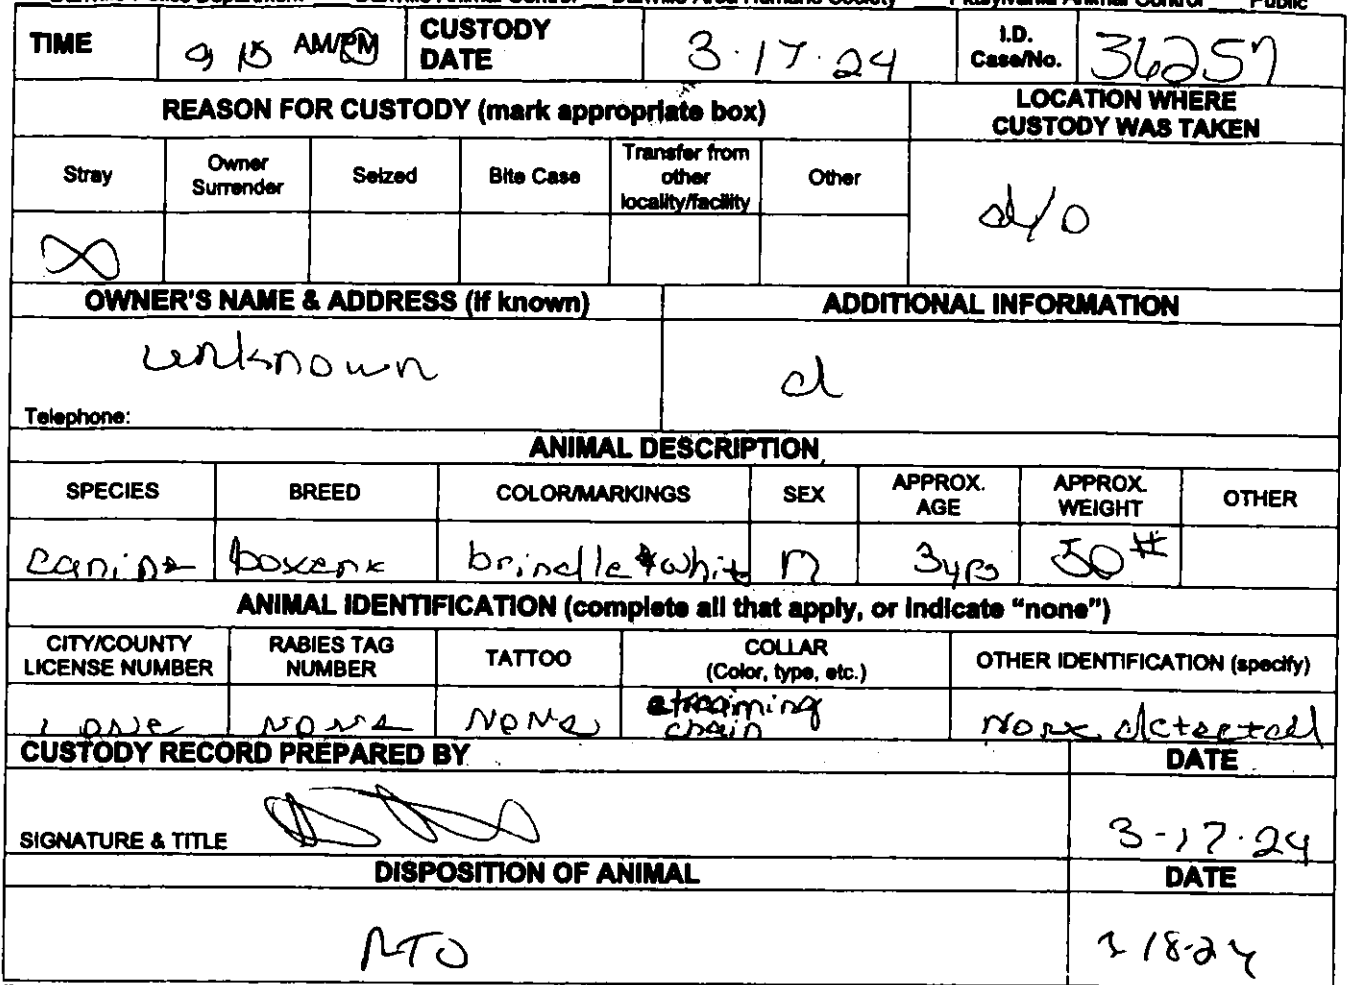 TIME 9 15 AM/PM CUSTODY DATE 3-17-24 I.D. Case/No. 36257
REASON FOR CUSTODY (mark appropriate box) LOCATION WHERE CUSTODY WAS TAKEN
Stray Owner Surrender Seized Bite Case Transfer from other locality/facility Other
d/o
OWNER'S NAME & ADDRESS (if known) ADDITIONAL INFORMATION
unknown d
Telephone:
ANIMAL DESCRIPTION
SPECIES BREED COLOR/MARKINGS SEX APPROX. AGE APPROX. WEIGHT OTHER
canine boxer brindle & white M 3yrs 50#
ANIMAL IDENTIFICATION (complete all that apply, or indicate "none")
CITY/COUNTY LICENSE NUMBER RABIES TAG NUMBER TATTOO COLLAR (Color, type, etc.) OTHER IDENTIFICATION (specify)
none none none training chain none detected
CUSTODY RECORD PREPARED BY DATE
SIGNATURE & TITLE 3-17-24
DISPOSITION OF ANIMAL DATE
RTO 3 18-24